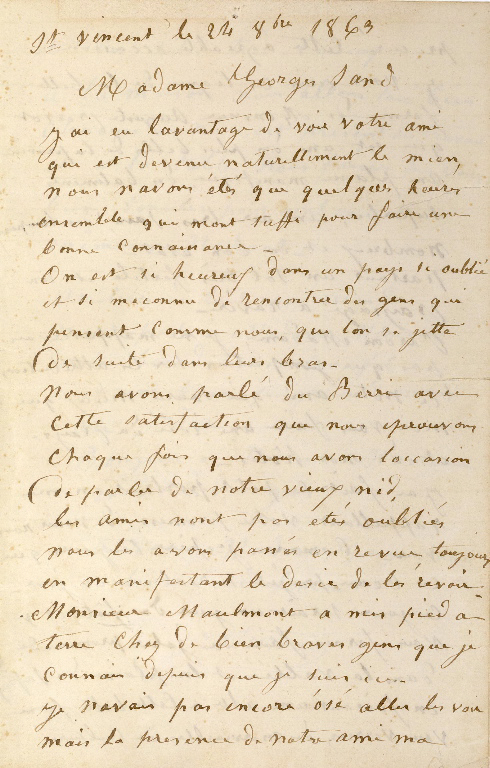 St vincent le 24 8bre 1863
Madame Georges Sand
j'ai eu lavantage de voir votre ami
qui est devenu naturellement le mien,
nous navons étés que quelques heures
ensemble qui mont suffi pour faire une
bonne connaissance.
On est si heureux dans un pays si oublié
et si meconnu de rencontrer des gens qui
pensent comme nous, que lon se jette
de suite dans leurs bras.
nous avons parlé du Berri avec
cette satisfaction que nous eprouvons
chaque fois que nous avons loccasion
de parler de notre vieux nid,
les amis nont pas etés oubliés
nous les avons passés en revue toujours
en manifestant le desir de les revoir.
Monsieur Maulmont a mis pied a
terre chez de bien braves gens que je
connais depuis que je suis ici.
je navais pas encore ósé aller les voir
mais la presence de notre ami ma